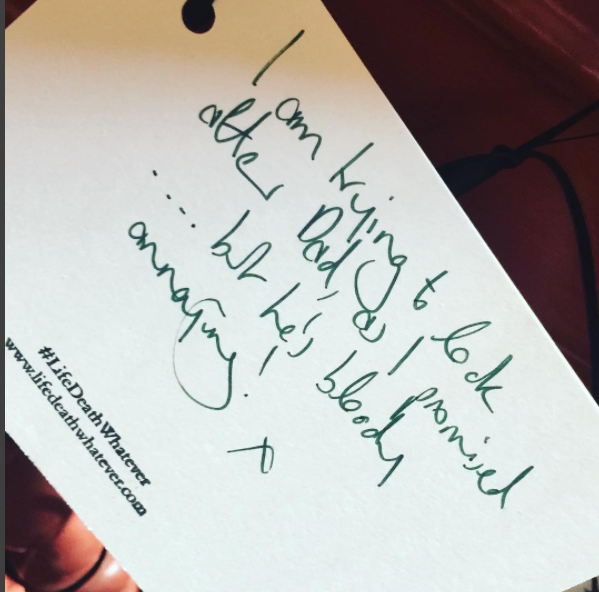 I am trying to look
after Dad, as I promised
.... but he's bloody
annaying! x
#LifeDeathWhatever
www.lifedeathwhatever.com